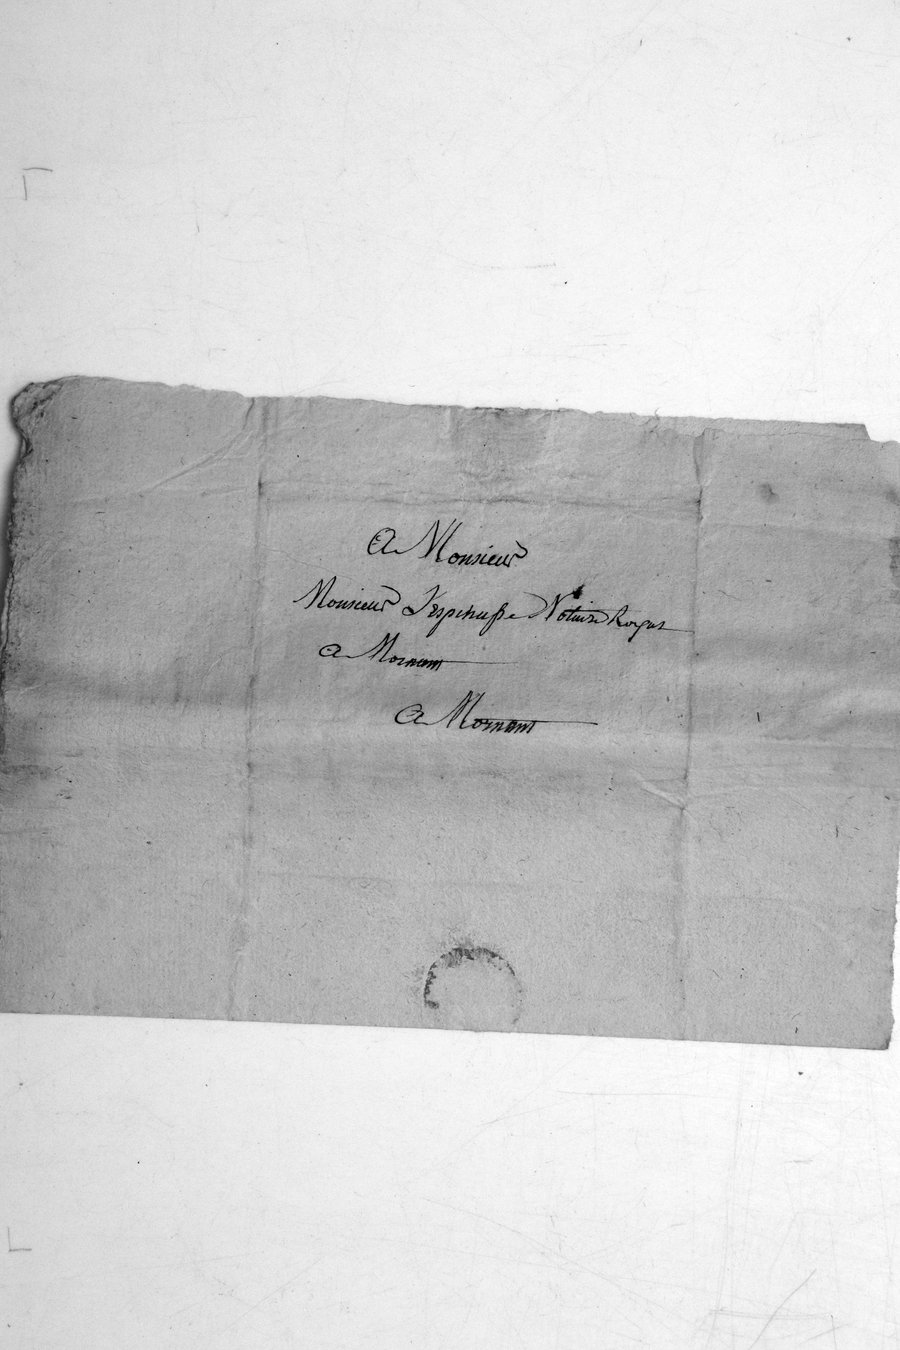 A Monsieur
Monsieur Lespinasse Notaire Royal
a Mornant
A Mornant